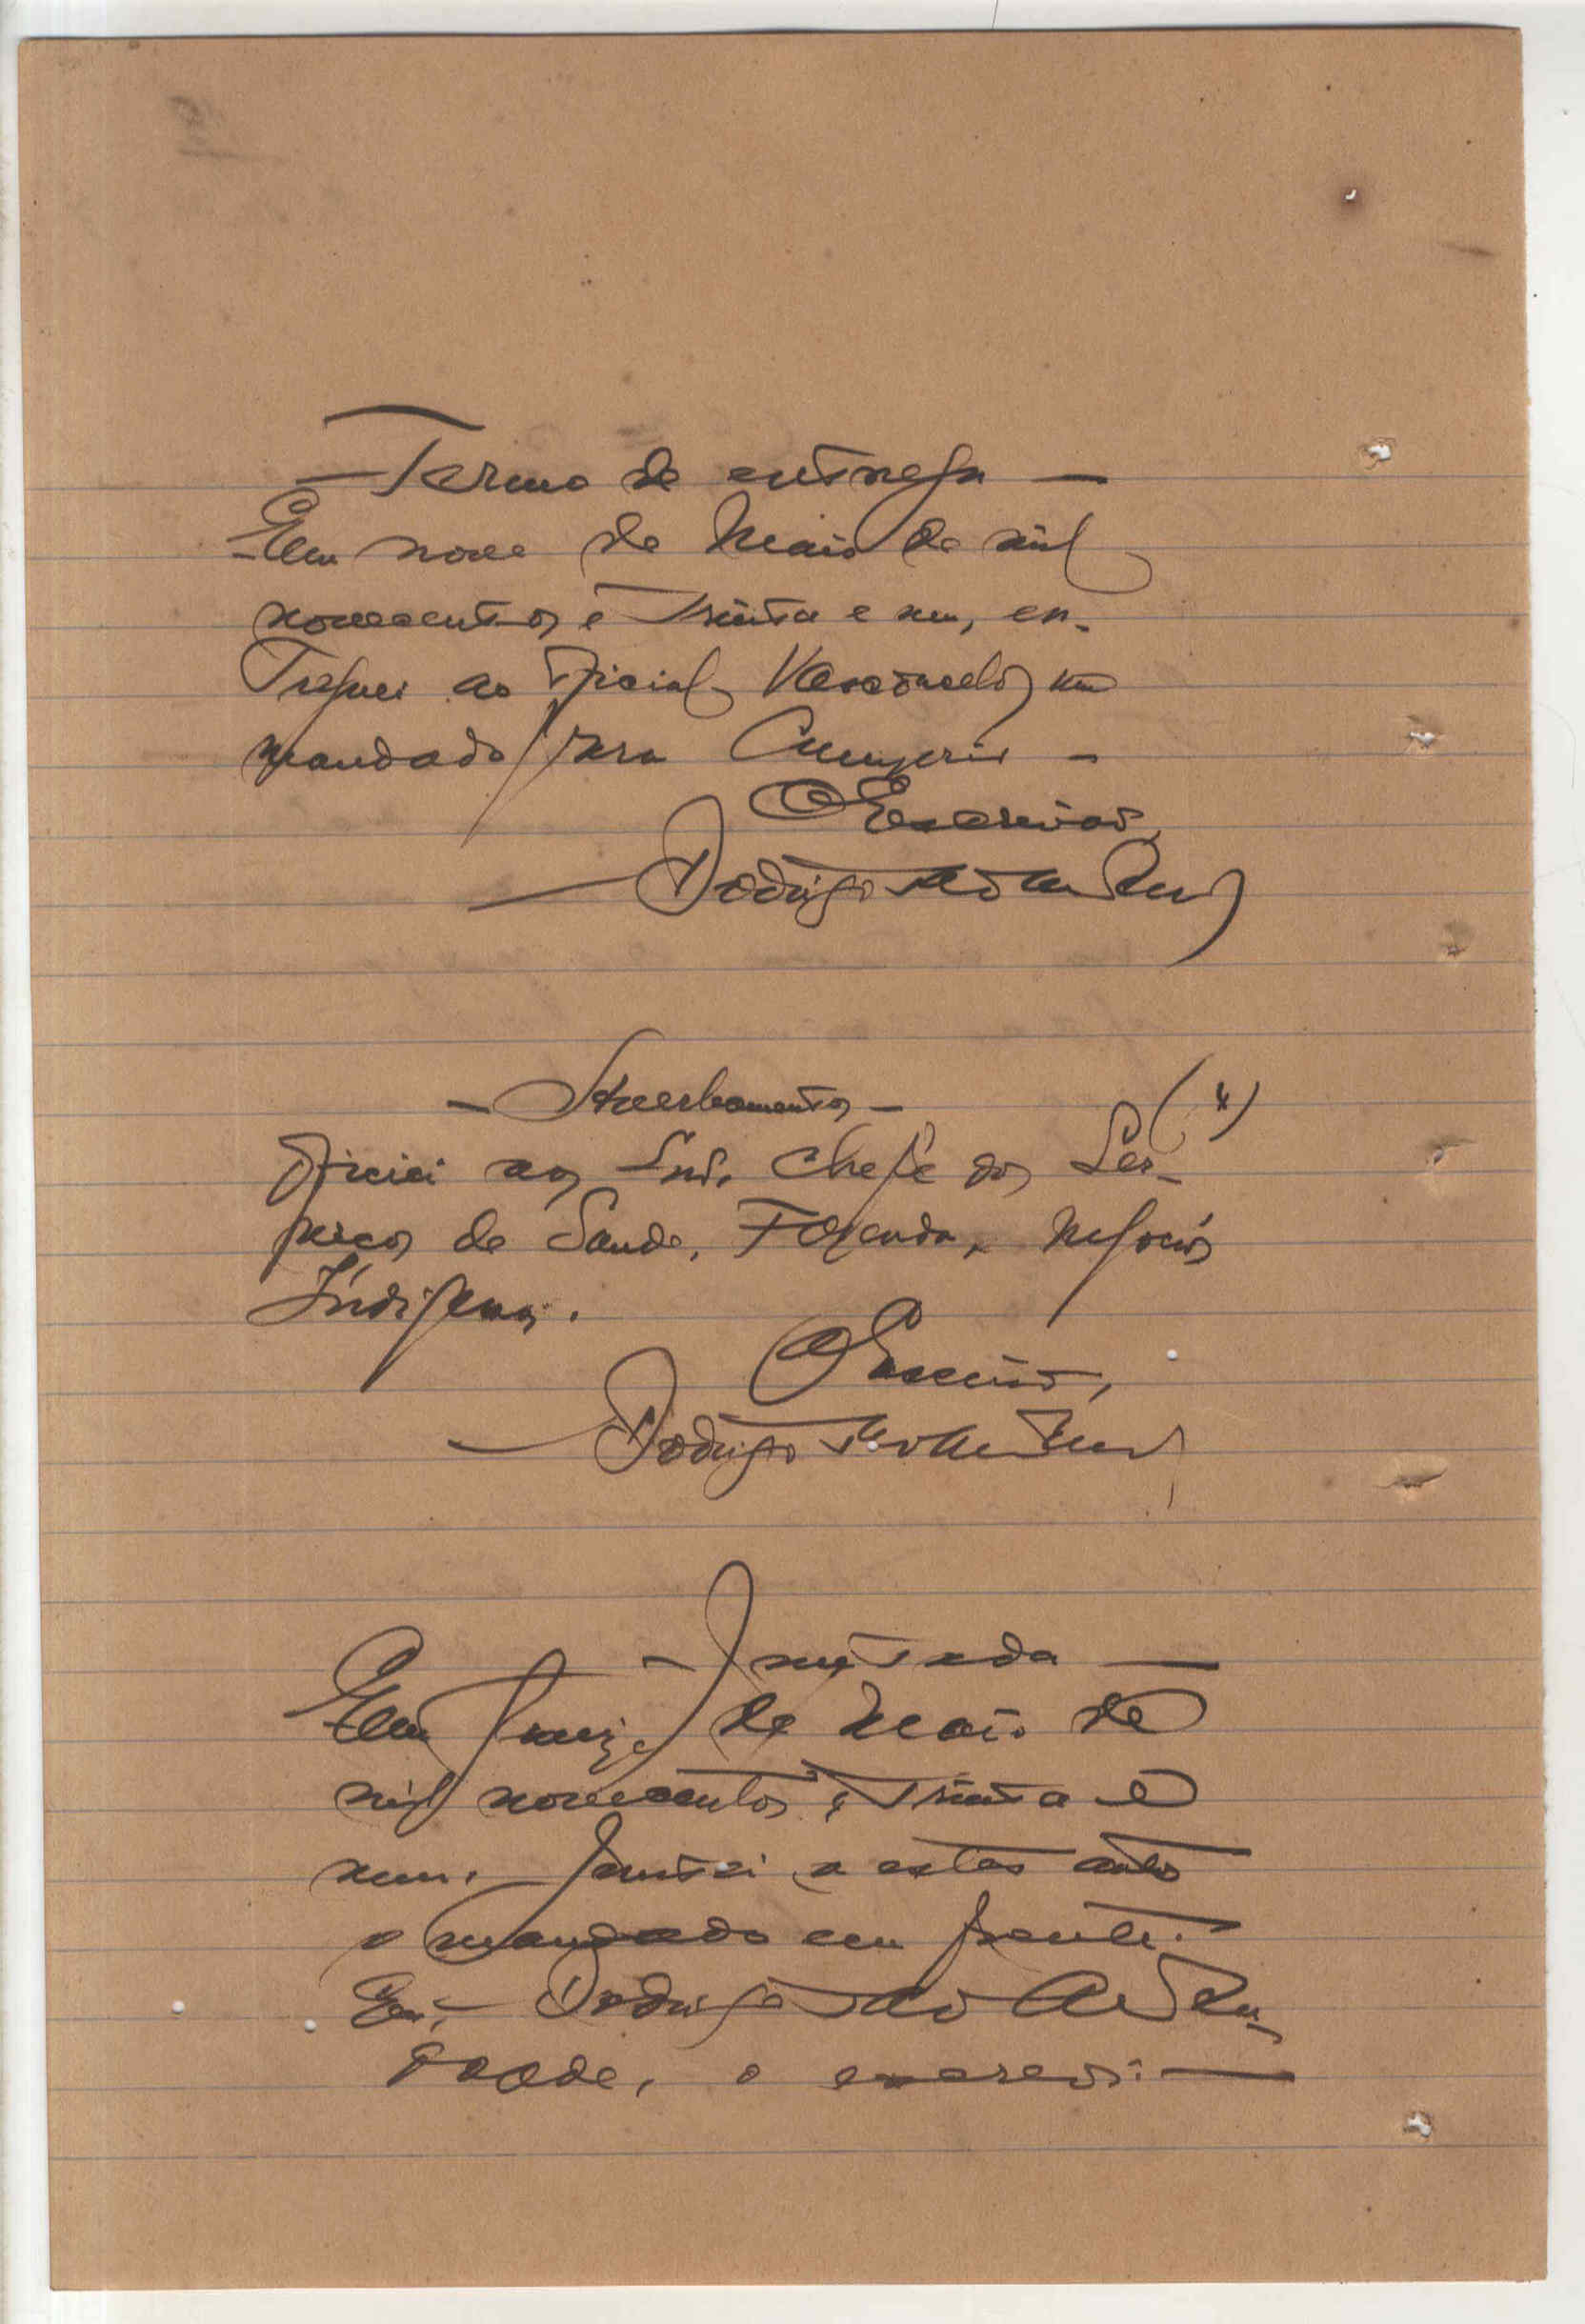 — Termo de entrega —
Em nove de Maio de mil
novecentos e trinta e um, en-
treguei ao oficial Vasconcelos um
mandado para cumprir —
O Escrivão,
Rodrigo
— Averbamentos —
Oficiei aos Snrs. Chefe dos Ser-
viços de Saude, Fazenda, Negocios
Indigenas.
O Escrivão,
Rodrigo
— Juntada —
Em quinze de Maio de
mil novecentos e trinta e
um, juntei a estes autos
o mandado em frente.
Eu, Rodrigo
o escrevi. —